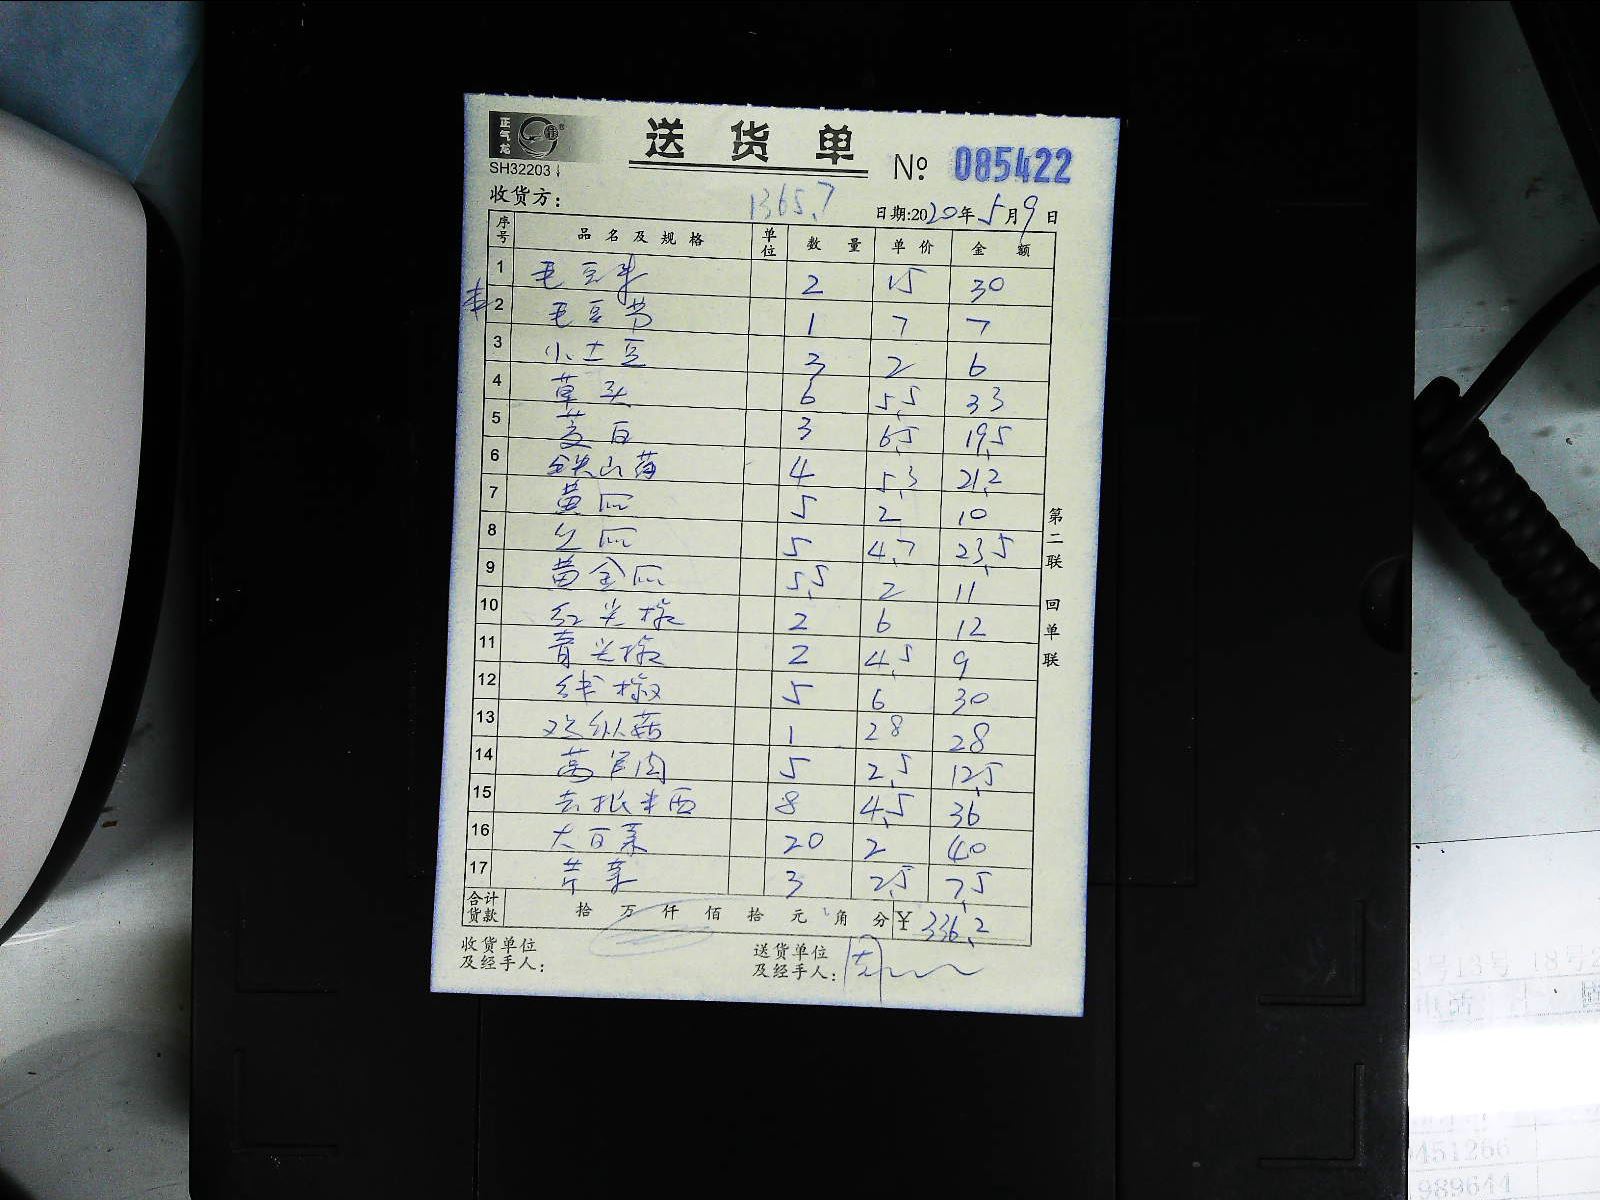 正气龙
SH32203
送货单
№ 085422
收货方：
1365.7
日期:2020年5月9日
序号 品名及规格 单位 数量 单价 金额
1 毛豆米 2 15 30
2 毛豆节 1 7 7
3 小土豆 3 2 6
4 草头 6 5.5 33
5 茭白 3 6.5 19.5
6 铁山药 4 5.3 21.2
7 黄瓜 5 2 10
8 丝瓜 5 4.7 23.5
9 黄金瓜 5.5 2 11
10 红尖椒 2 6 12
11 青尖椒 2 4.5 9
12 线椒 5 6 30
13 鸡纵菇 1 28 28
14 莴 肉 5 2.5 12.5
15 去 西 8 4.5 36
16 大白菜 20 2 40
17 芹菜 3 2.5 7.5
合计货款 拾 万 仟 佰 拾 元 角 分 ¥ 336.2
收货单位及经手人：
送货单位及经手人：
第二联 回单联
8号13号 18号2
电话
451266
989644